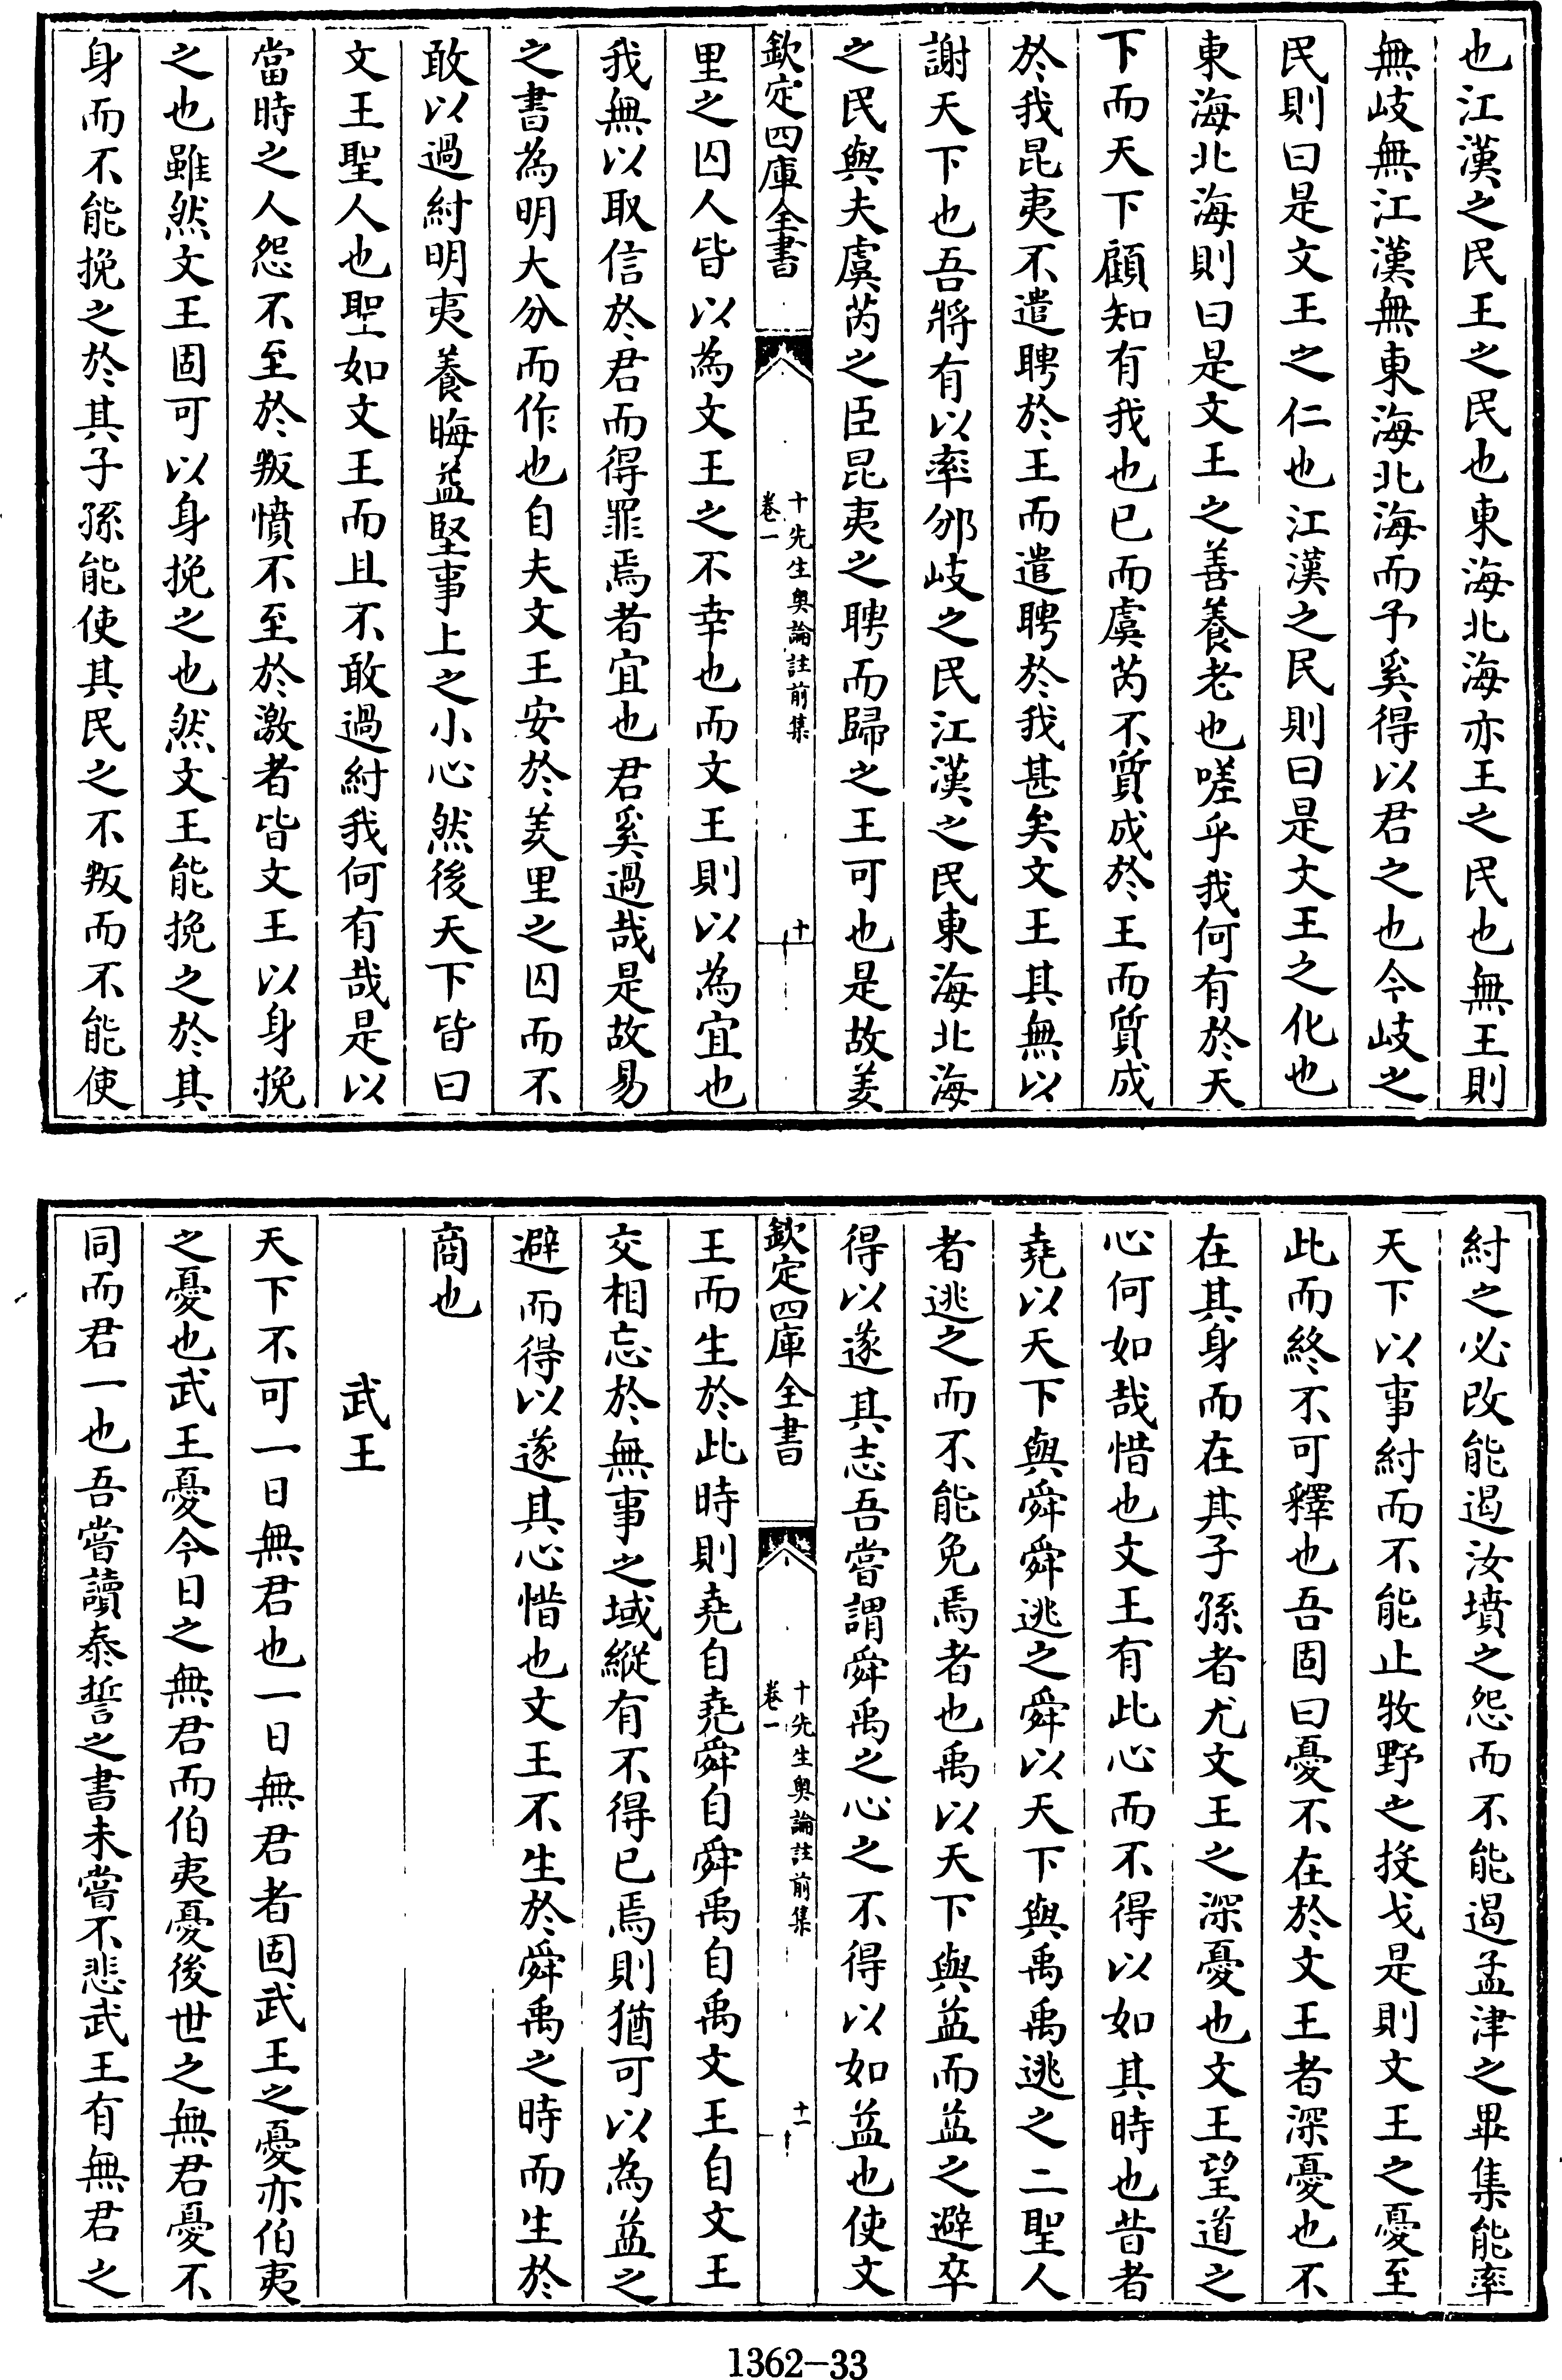 也江漢之民王之民也東海北海亦王之民也無王則
無岐無江漢無東海北海而予奚得以君之也今岐之
民則曰是文王之仁也江漢之民則曰是文王之化也
東海北海則曰是文王之善養老也嗟乎我何有於天
下而天下顧知有我也已而虞芮不質成於王而質成
於我昆夷不遣聘於王而遣聘於我甚矣文王其無以
謝天下也吾將有以率邠岐之民江漢之民東海北海
之民與夫虞芮之臣昆夷之聘而歸之王可也是故羑
欽定四庫全書
十先生奥論註前集
卷一
十
里之囚人皆以為文王之不幸也而文王則以為宜也
我無以取信於君而得罪焉者宜也君奚過哉是故易
之書為明大分而作也自夫文王安於羑里之囚而不
敢以過紂明夷養晦益堅事上之小心然後天下皆曰
文王聖人也聖如文王而且不敢過紂我何有哉是以
當時之人怨不至於叛憤不至於激者皆文王以身挽
之也雖然文王固可以身挽之也然文王能挽之於其
身而不能挽之於其子孫能使其民之不叛而不能使
紂之必改能遏汝墳之怨而不能遏孟津之畢集能率
天下以事紂而不能止牧野之投戈是則文王之憂至
此而終不可釋也吾固曰憂不在於文王者深憂也不
在其身而在其子孫者尤文王之深憂也文王望道之
心何如哉惜也文王有此心而不得以如其時也昔者
堯以天下與舜舜逃之舜以天下與禹禹逃之二聖人
者逃之而不能免焉者也禹以天下與益而益之避卒
得以遂其志吾嘗謂舜禹之心之不得以如益也使文
欽定四庫全書
十先生奥論註前集
卷一
十一
王而生於此時則堯自堯舜自舜禹自禹文王自文王
交相忘於無事之域縱有不得已焉則猶可以為益之
避而得以遂其心惜也文王不生於舜禹之時而生於
商也
武王
天下不可一日無君也一日無君者固武王之憂亦伯夷
之憂也武王憂今日之無君而伯夷憂後世之無君憂不
同而君一也吾嘗讀泰誓之書未嘗不悲武王有無君之
1362-33